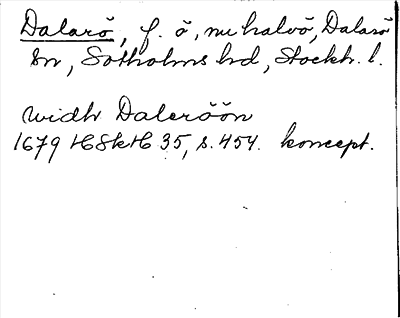 Dalarö, f. ö, nu halvö, Dalarö
sn, Sotholms hd, Stockh. l.
widh Daleröön
1679 HSkH 35, s. 454. koncept.